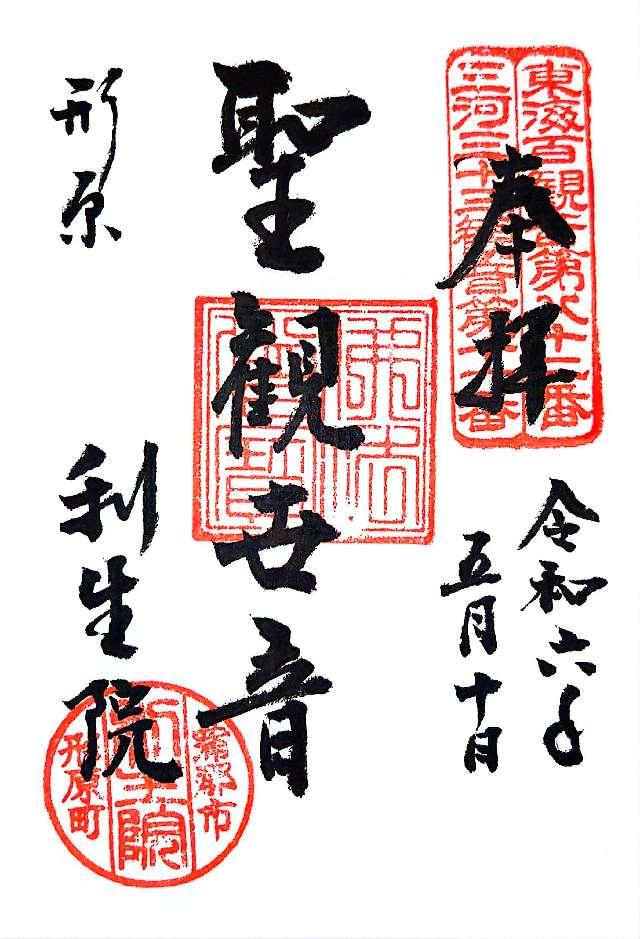 奉拝
東海百観音第
三河三十三観音第
令和六年
五月十日
聖観世音
佛法僧寶
形原
利生院
蒲郡市
利生院
形原町